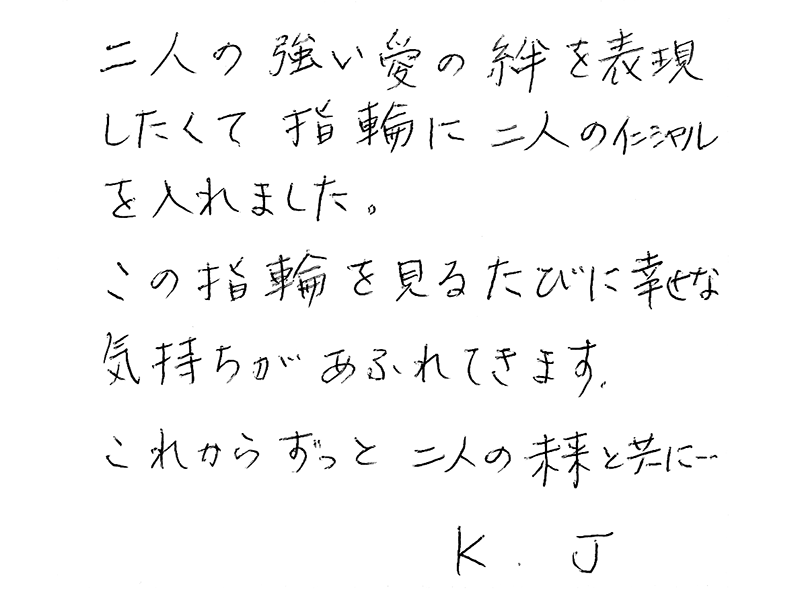 二人の強い愛の絆を表現
したくて指輪に二人のイニシャル
を入れました。
この指輪を見るたびに幸せな
気持ちがあふれてきます。
これからずっと二人の未来と共に…
K. J